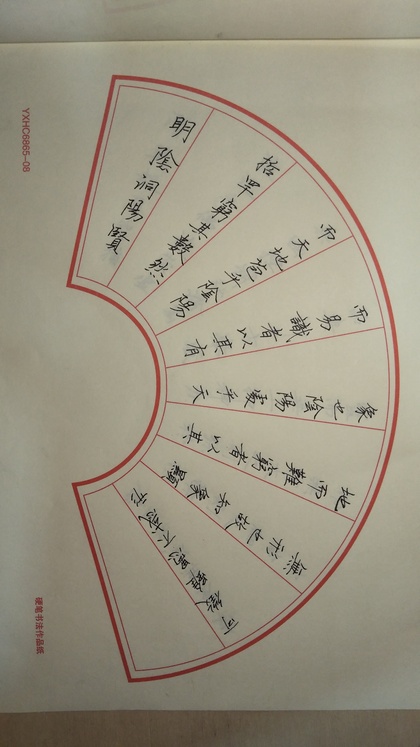 明陰洞陽賢
哲罕窮其數然
而天地苞乎陰陽
而易識者以其有
象也陰陽處乎天
地而難窮者以其
無形也故知象顯
可徵雖愚不惑形
YXHC6865-08
硬笔书法作品纸